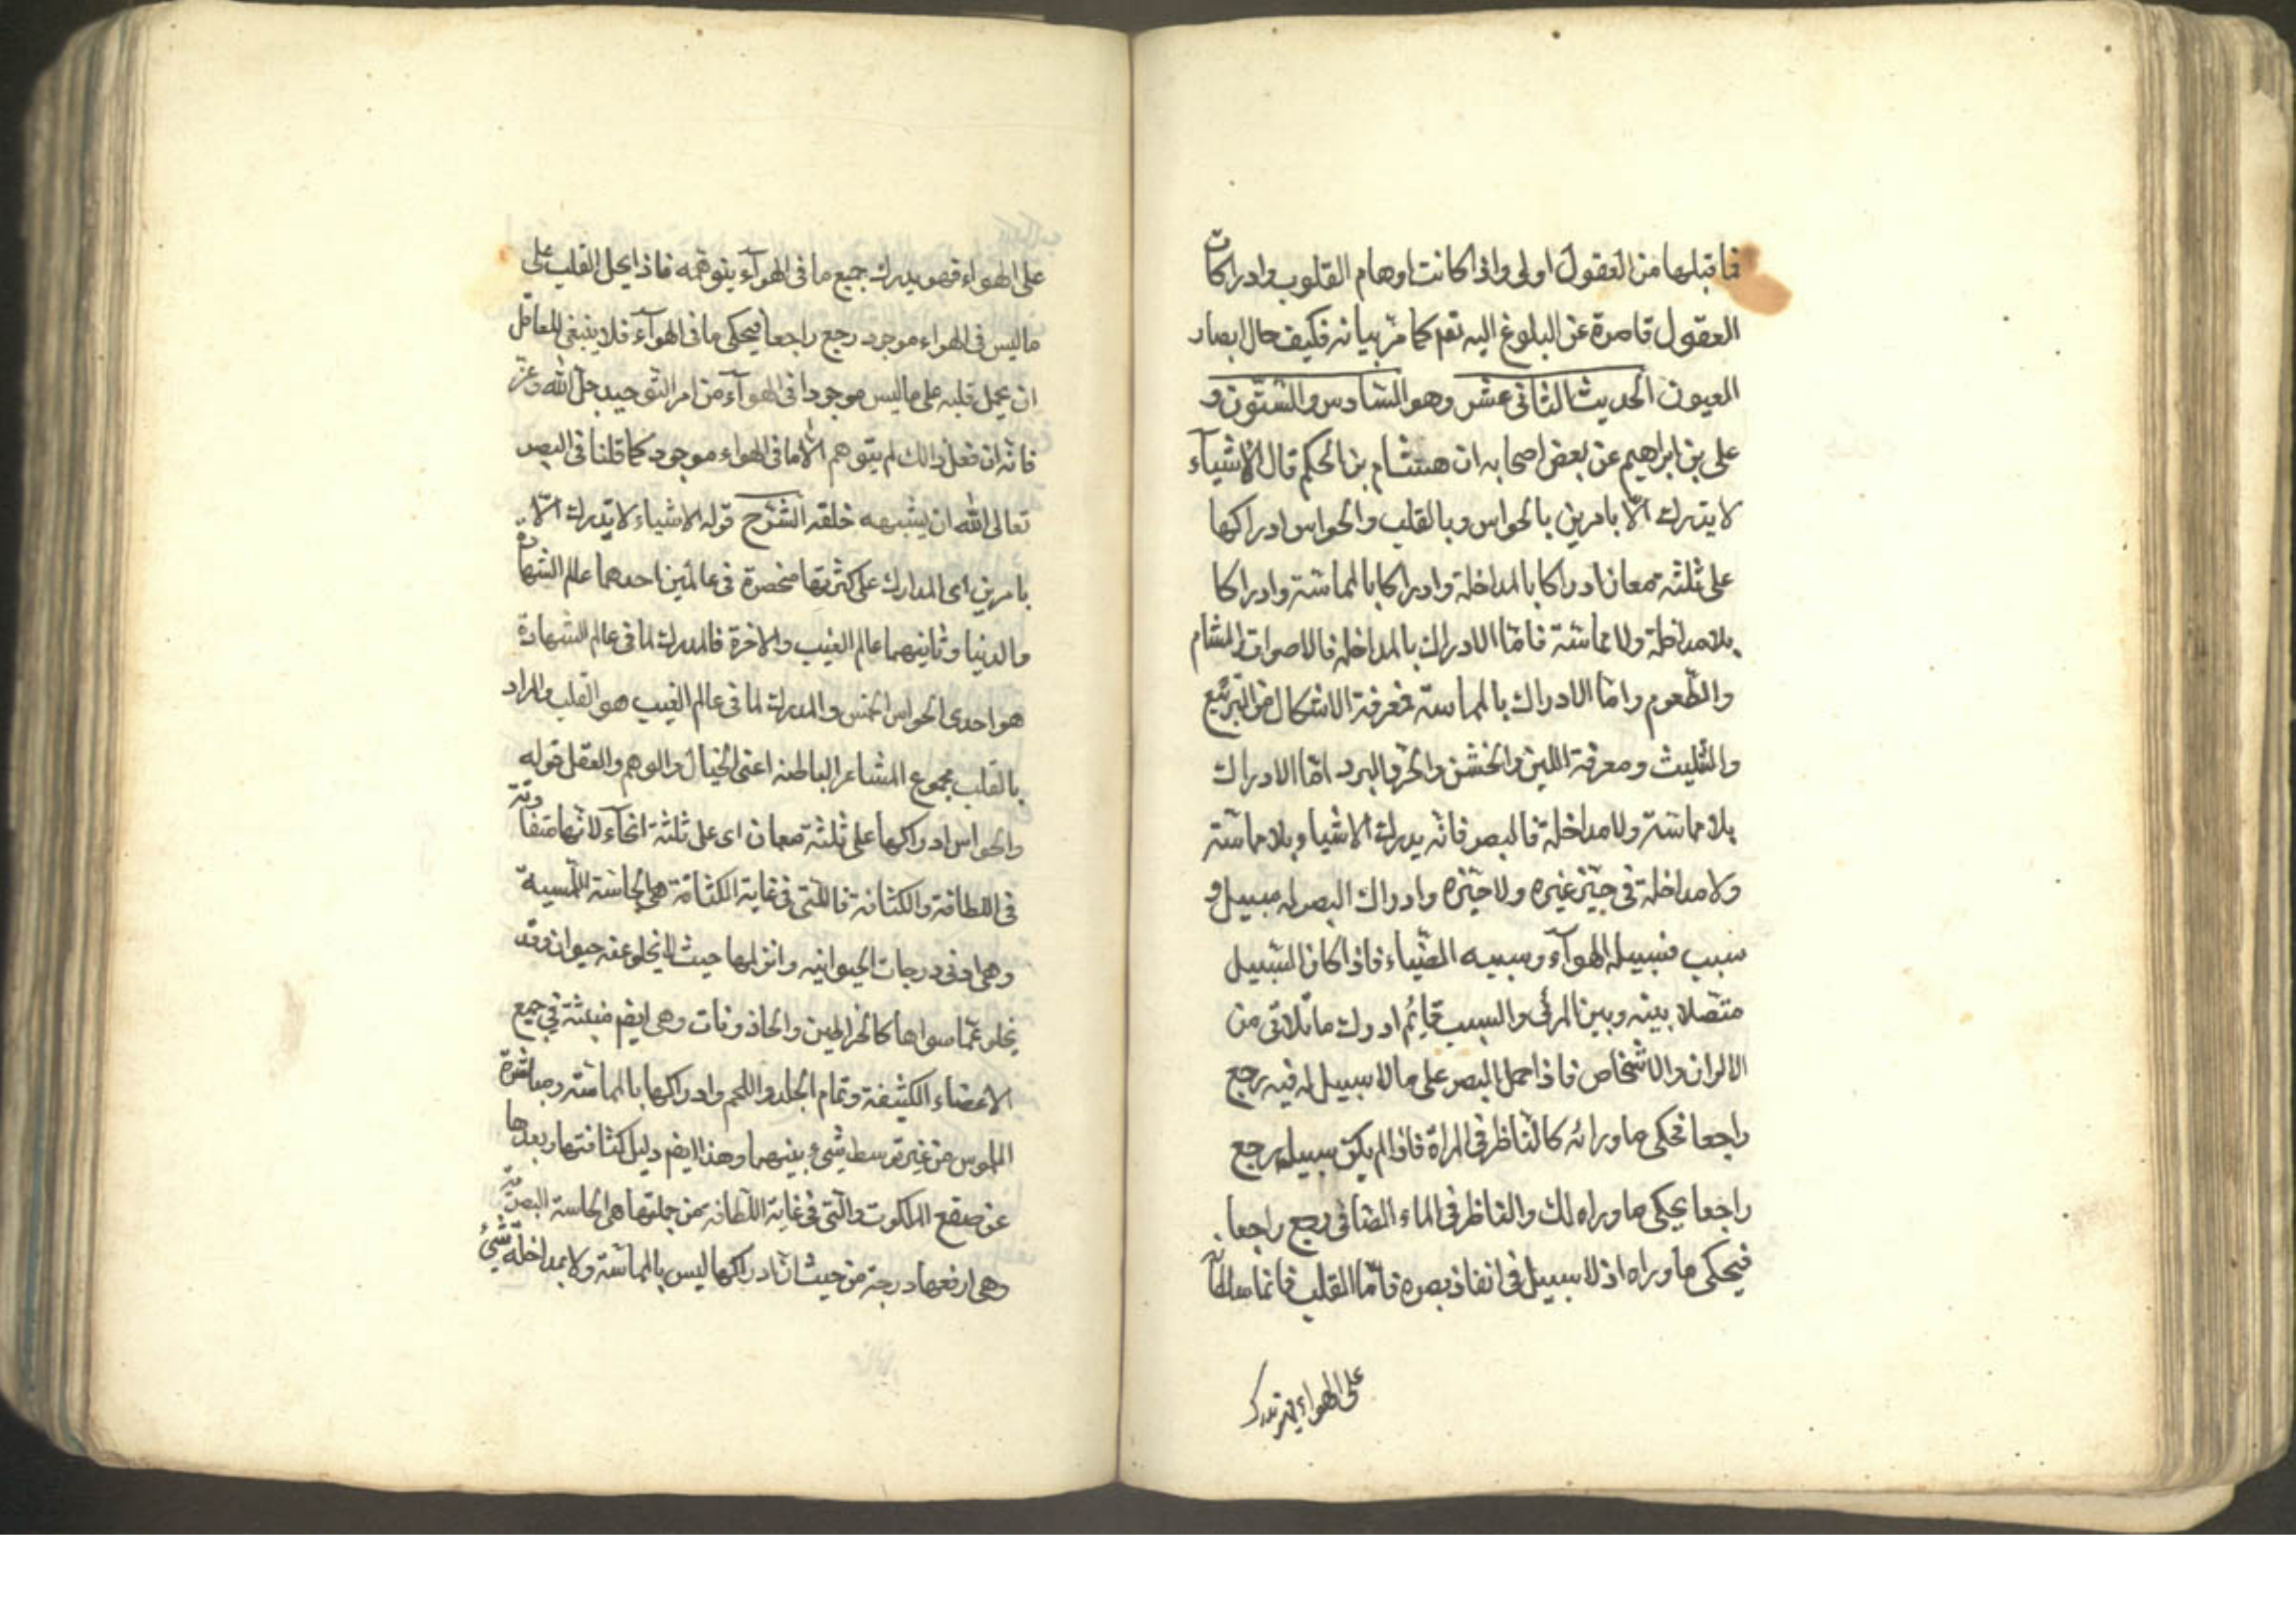 فما قبلها من العقول اولى واذا كانت اوهام القلوب وادراكات
العقول قاصرة عن البلوغ اليه تعم كما مرّ بيانه فكيف حال ابصار
العيون الحديث الثانى عشر وهو السّادس والستّون و
على بن ابراهيم عن بعض اصحابه ان هشام بن الحكم قال الاشياء
لا يدرك الّا بامرين بالحواس وبالقلب والحواس ادراكها
على ثلثة معان ادراكا بالمداخلة وادراكا بالمماسّة وادراكا
بلا مداخلة ولا مماسّة فامّا الادراك بالمداخلة فالاصوات والمشام
والطّعوم وامّا الادراك بالمماسة فمعرفة الاشكال من التربيع
والتثليث ومعرفة اللين والخشن والحرّ والبرد امّا الادراك
بلا مماسّة ولا مداخلة فالبصر فانه يدرك الاشيا و بلا مماسّة
ولا مداخلة فى حيّز غيره ولا حيّزه وادراك البصر له سبيل و
سبب فسبيله الهوآء وسببه الضّياء فاذا كان السّبيل
متّصلا بينه وبين المرئى والسبب قائم ادرك ما تلاقى من
الالوان والاشخاص فاذا حمل البصر على ما لا سبيل له فيه رجع
راجعا فحكى ما ورائه كالنّاظر فى المرآة فاذا لم يكن سبيله رجع
راجعا يحكى ما وراه لك والنّاظر فى الماء الصّافى رجع راجعا
فيحكى ما وراه اذ لا سبيل فى انفاذ بصره فامّا القلب فانما سلطانه
على الهواء فهو يدرك
على الهواء فهو يدرك جميع ما فى الهوآء يتوهّمه فاذا يحمل القلب على
ما ليس فى الهواء موجود رجع راجعا فيحكى ما فى الهوآء فلا ينبغى للعاقل
ان يحمل قلبه على ما ليس موجودا فى الهوآء من امر التّوحيد جلّ الله وعزّ
فانّه ان فعل ذالك لم يتوهم الّا ما فى الهواء موجود كما قلنا فى البصر
تعالى الله ان يشبهه خلقه الشّرح قوله الاشياء لا يدرك الّا
بامرين اى المدارك على كثرتها منحصرة فى عالمين احدهما عالم الشهادة
والدنيا وثانيهما عالم الغيب والاخرة فالمدرك لما فى عالم الشهادة
هو احدى الحواس الخمس والمدرك لما فى عالم الغيب هو القلب والمراد
بالقلب مجموع المشاعر الباطنه اعنى الخيال والوهم والعقل قوله
والحواس ادراكها على ثلثة معان اى على ثلثة انحآء لانّها متفاوتة
فى اللطافة والكثافة فاللّتى فى غاية الكثافة هى الحاسّة اللّمسية
وهى ادنى درجات الحيوانيه وانزلها حيث لا يخلو عنه حيوان وقد
يخلو عمّا سواها كالخراطين والحلذونات وهى ايضم منبثّة فى جميع
الاعضاء الكثيفة وتمام الجلد واللحم وادراكها بالمماسّه ومباشرة
الملموس من غير توسط شىء بينهما وهذا ايضم دليل كثافتها وبعدها
عن صقع الملكوت والّتى فى غاية اللّطافه من جملتها هى الحاسة البصريّة
وهى ارفعها درجة من حيث ان ادراكها ليس بالمماسّة ولا بمداخلة شىء